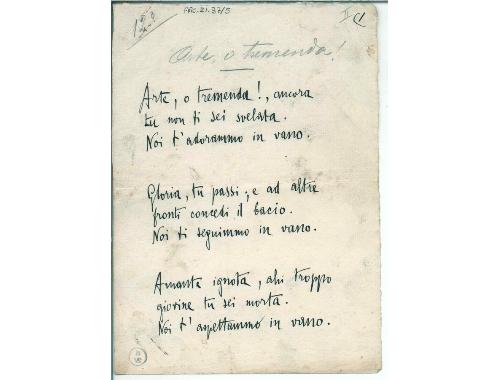 Arte, o tremenda!
Arte, o tremenda!, ancora
tu non ti sei svelata.
Noi t'adorammo in vano.
Gloria, tu passi, e ad altre
fronti concedi il bacio.
Noi ti seguimmo in vano.
Amante ignota, ahi troppo
giovine tu sei morta.
Noi t'aspettammo in vano.